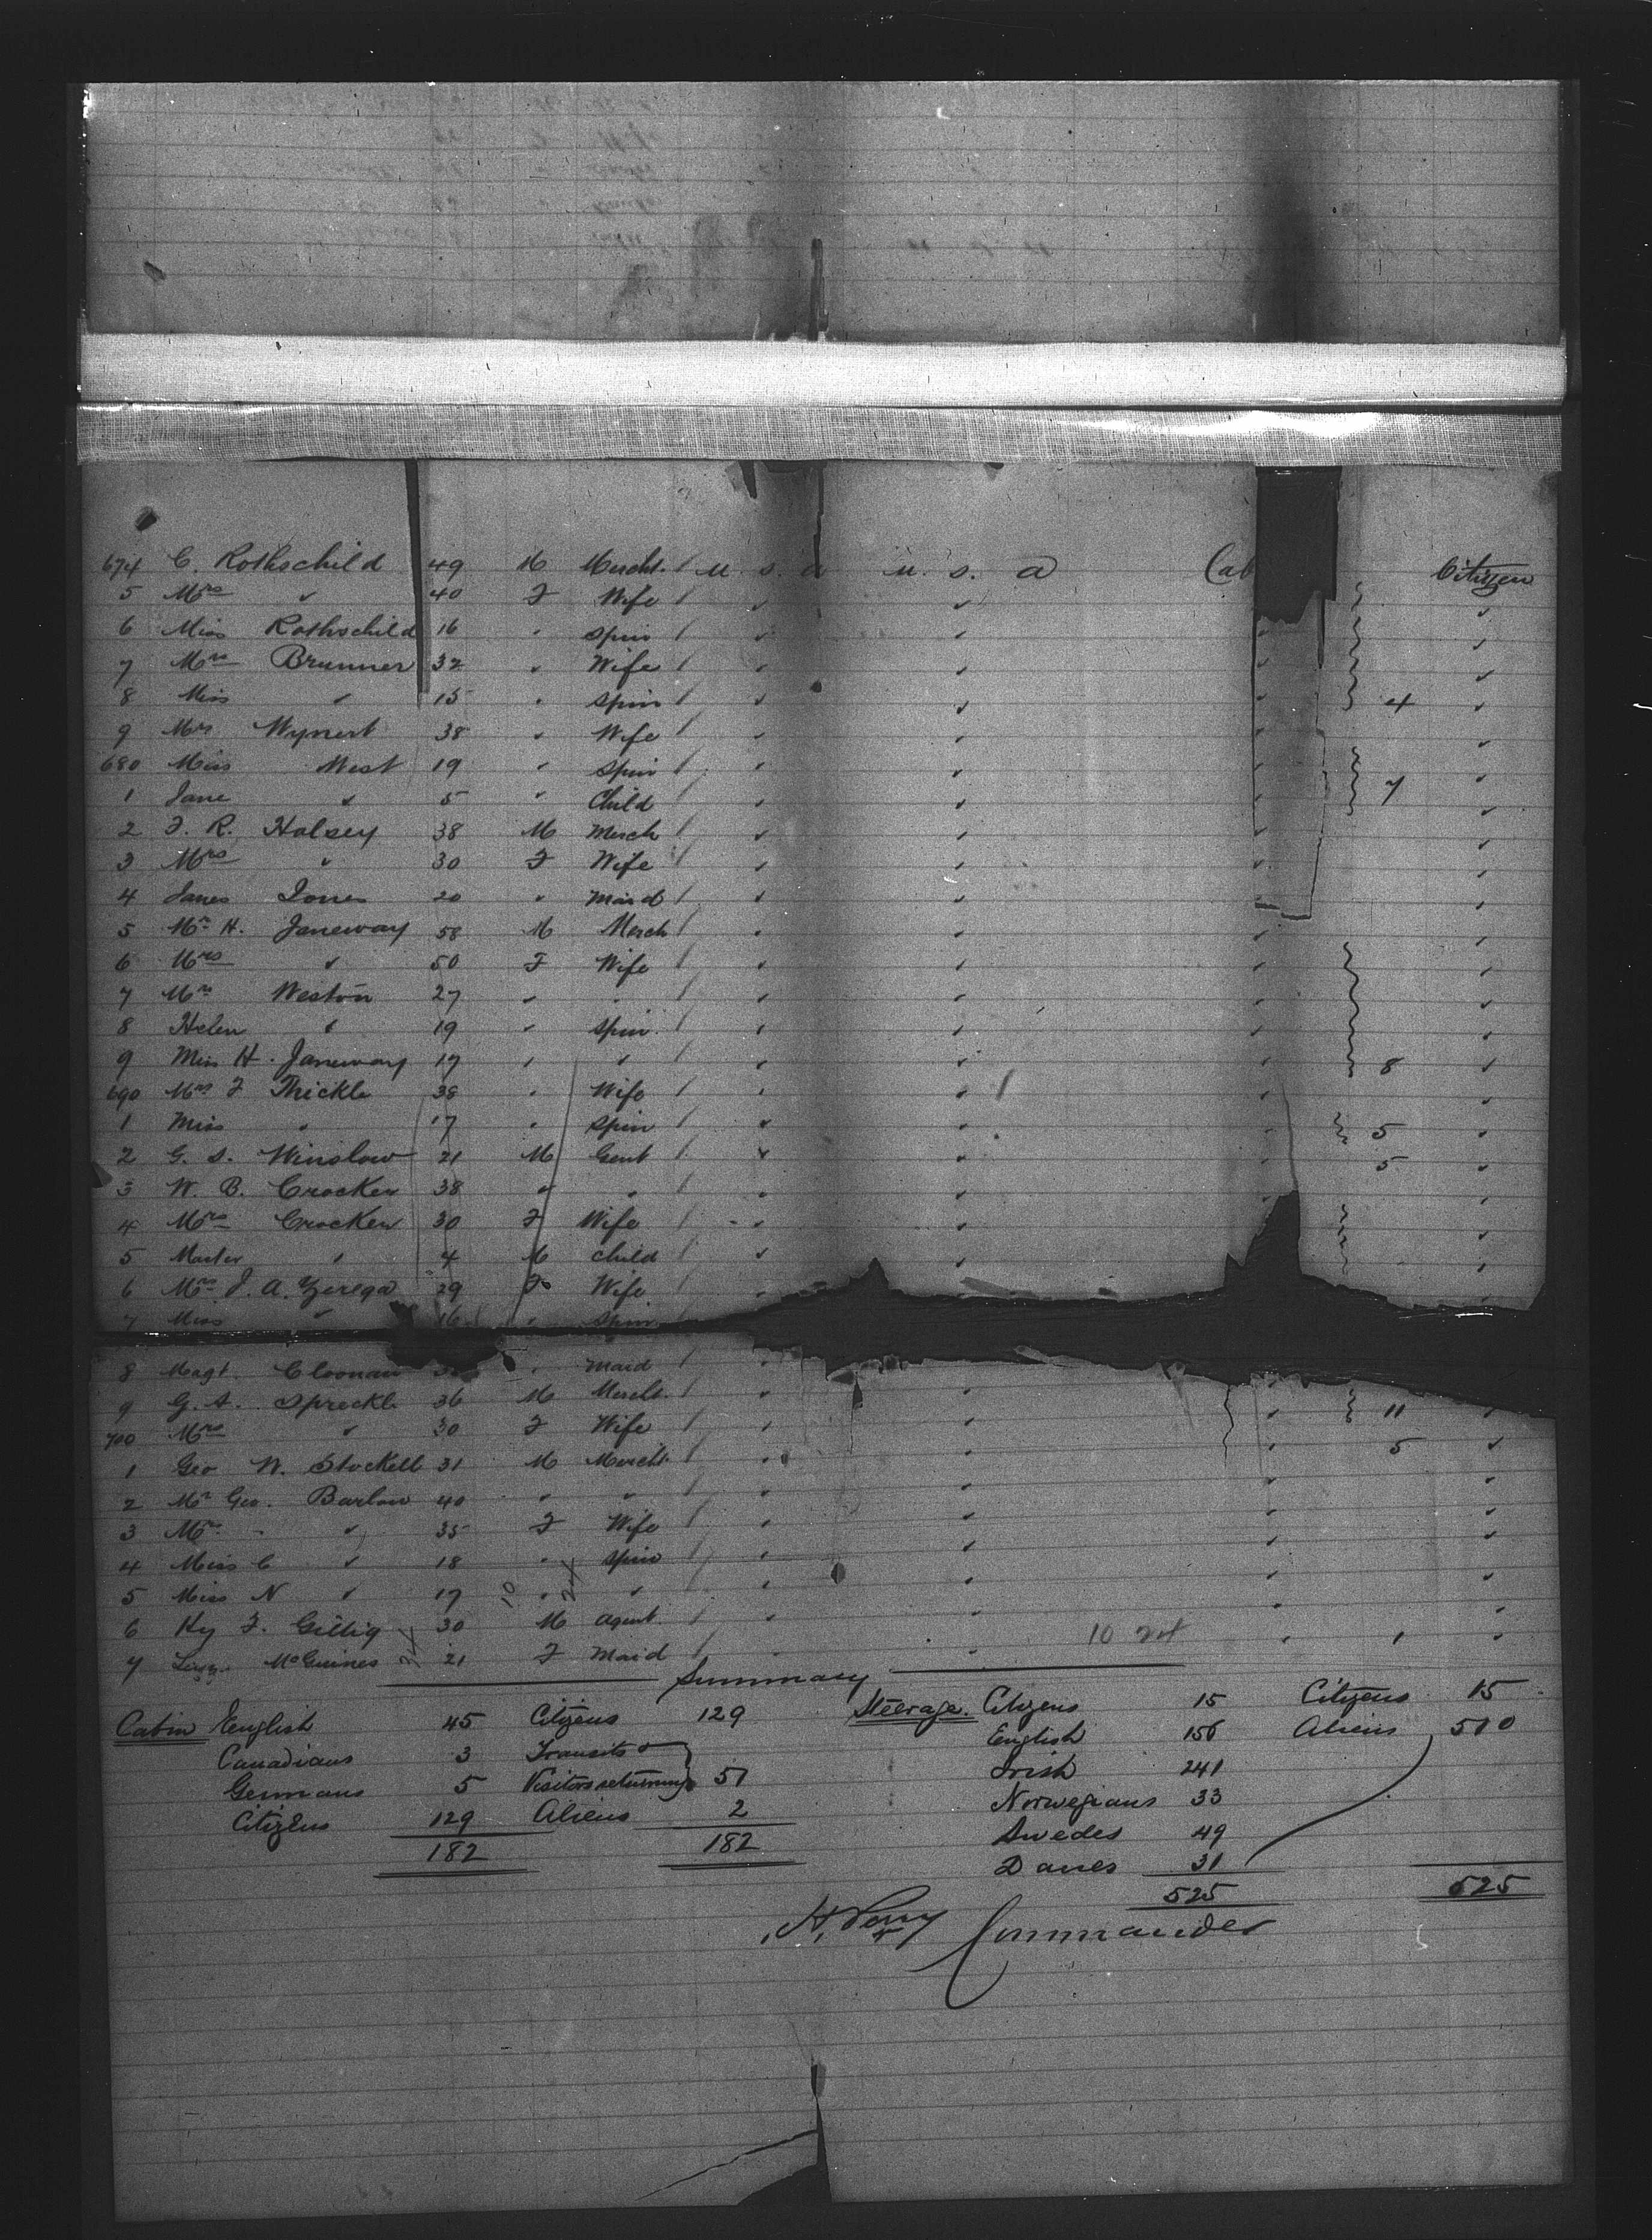 674 C. Rothschild 49 M Mercht. / U S. a U. S. a Cab Citizen
5 Mrs ✓ 40 F Wife / ✓ ✓ ✓
6 Miss Rothschild 16 " Spin / ✓ ✓ ✓ ✓
7 Mrs Brunner 32 " Wife / ✓ ✓ ✓ ✓
8 Miss ✓ 15 " Spin / ✓ ✓ ✓ 4 ✓
9 Mrs Wynert 38 " Wife / ✓ ✓ ✓ ✓
680 Miss West 19 " Spin / ✓ ✓ ✓ ✓
1 Jane ✓ 5 " Child / ✓ ✓ ✓ 7 ✓
2 F. R. Halsey 38 M Merch / ✓ ✓ ✓ ✓
3 Mrs ✓ 30 F Wife / ✓ ✓ ✓ ✓
4 Janes Jones 20 " Maid / ✓ ✓ ✓
5 Mr H. Janeway 58 M Merch / ✓ ✓ ✓ ✓
6 Mrs ✓ 50 F Wife / ✓ ✓ ✓ ✓
7 Mrs Weston 27 " " / ✓ ✓ ✓ ✓
8 Helen ✓ 19 " Spin / ✓ ✓ ✓ ✓
9 Miss H. Janeway 17 " " / ✓ ✓ ✓ 8 ✓
690 Mrs F Thickle 38 " Wife / ✓ ✓ ✓ ✓
1 Miss " 17 " Spin / ✓ ✓ ✓ 5 ✓
2 G. S. Winslow 21 M Gent / ✓ ✓ ✓ 5 ✓
3 W. B. Crocker 38 " " / ✓ ✓ ✓ ✓
4 Mrs Crocker 30 F Wife / ✓ ✓ ✓
5 Master " 4 M Child / ✓ ✓ ✓
6 Mrs J. A. Zerega 39 F Wife / ✓ ✓
7 Miss ✓ 16 " Spin
8 Magt. Cloonan " Maid / ✓
9 G. A. Spreckl 36 M Mercht. / ✓ ✓ ✓ 11 ✓
700 Mrs ✓ 30 F Wife / ✓ ✓ ✓ 5 ✓
1 Geo W. Stockell 31 M Mercht. / ✓ ✓ ✓ ✓
2 Mr Geo. Barlow 40 " " / ✓ ✓ ✓ ✓
3 Mrs " ✓ 35 F Wife / ✓ ✓ ✓ ✓
4 Miss C ✓ 18 " Spin / ✓ ✓ ✓ ✓
5 Miss N ✓ 17 " " ✓ ✓ ✓ ✓
6 Hy F. Gillig 30 M Agent / ✓ ✓ ✓ ✓
7 McGuines 21 F Maid / ✓ ✓ 10 24 ✓ 1 ✓
Summary
Cabin English 45 Citizens 129 Steerage. Citizens 15 Citizens 15
Canadians 3 Transits & English 156 Aliens 510
Germans 5 Visitors returning } 51 Irish 241
Citizens 129 Aliens 2 Norwegians 33
182 182 Swedes 49
Danes 31
525 525
H. Parry Commander